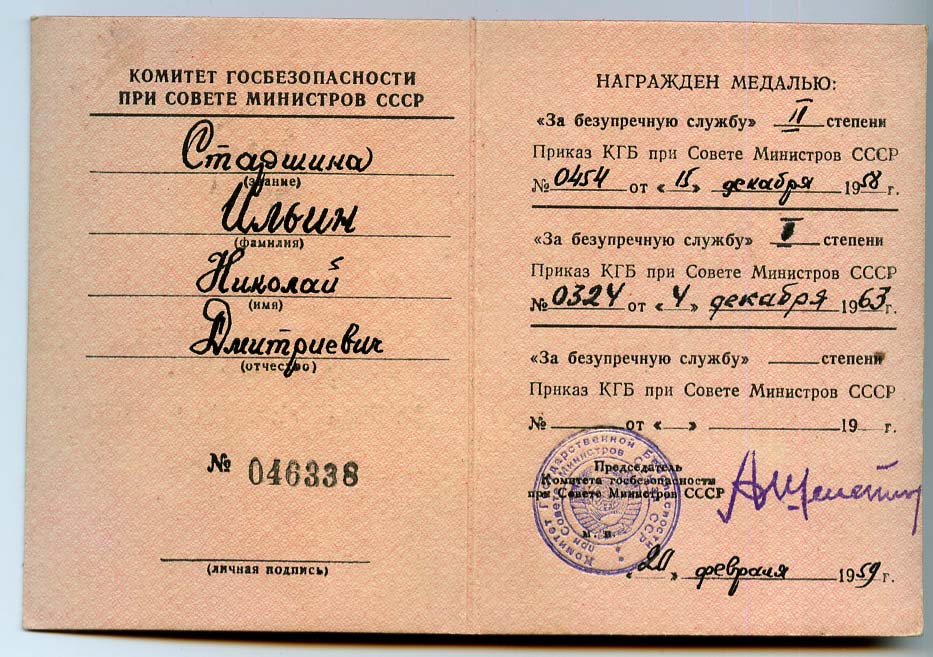 КОМИТЕТ ГОСБЕЗОПАСНОСТИ
ПРИ СОВЕТЕ МИНИСТРОВ СССР
Старшина
(звание)
Ильин
(фамилия)
Николай
(имя)
Дмитриевич
(отчество)
№ 046338
(личная подпись)
НАГРАЖДЕН МЕДАЛЬЮ:
«За безупречную службу» II степени
Приказ КГБ при Совете Министров СССР
№ 0454 от «15» декабря 1958 г.
«За безупречную службу» степени
Приказ КГБ при Совете Министров СССР
№ 0324 от «4» декабря 1963 г.
«За безупречную службу» степени
Приказ КГБ при Совете Министров СССР
№ от « » 19 г.
Председатель
Комитета госбезопасности
при Совете Министров СССР
м. п.
«20» февраля 1959 г.
Комитет Государственной Безопасности
при Совете Министров СССР